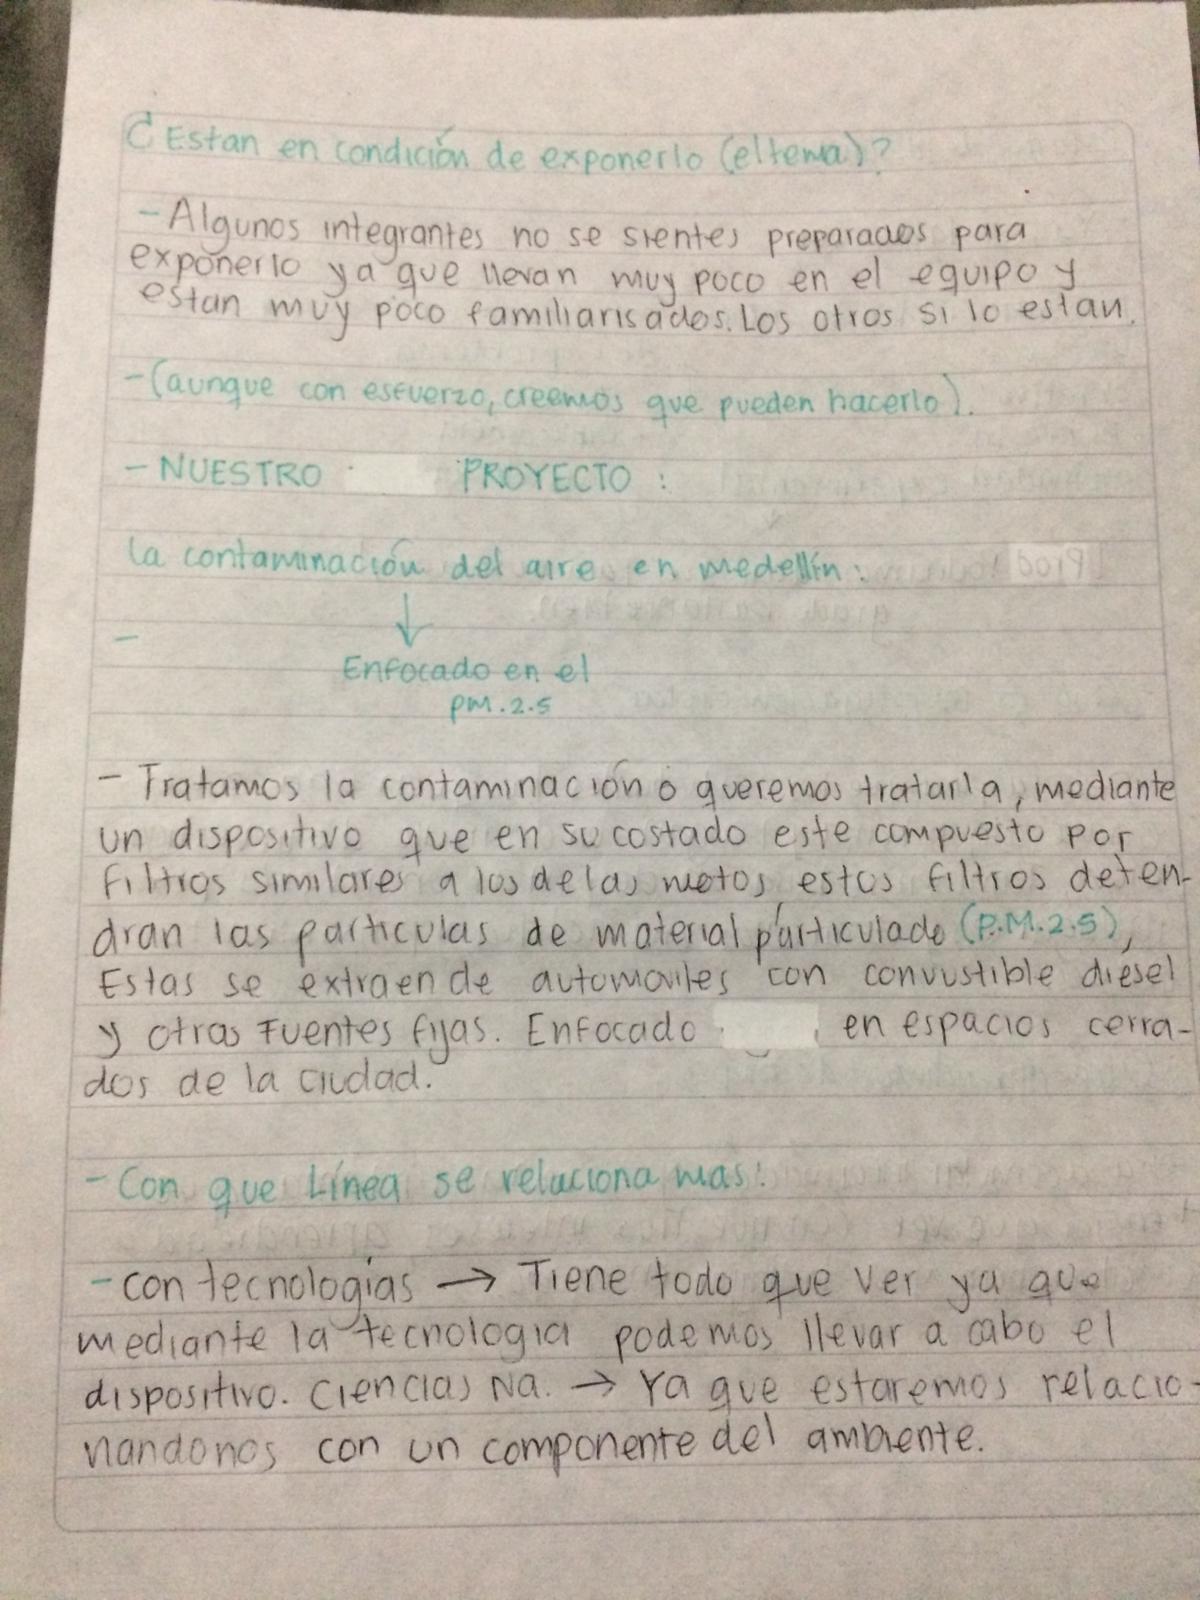 ¿Estan en condición de exponerlo (el tema)?
- Algunos integrantes no se sientes preparados para
exponerlo ya que llevan muy poco en el equipo y
estan muy poco familiarisados. Los otros si lo estan.
- (aunque con esfuerzo, creemos que pueden hacerlo).
- NUESTRO PROYECTO :
la contaminación del aire en medellín:
-
Enfocado en el
PM.2.5
- Tratamos la contaminación o queremos tratarla, mediante
un dispositivo que en su costado este compuesto por
filtros similares a los de las motos, estos filtros deten-
dran las particulas de material particulado (P.M.2.5),
Estas se extraen de automoviles con convustible diesel
y otras Fuentes fijas. Enfocado en espacios cerra-
dos de la ciudad.
- Con que Línea se relaciona mas:
- con tecnologías → Tiene todo que ver ya que
mediante la tecnologia podemos llevar a cabo el
dispositivo. Ciencias Na. → Ya que estaremos relacio-
nandonos con un componente del ambiente.